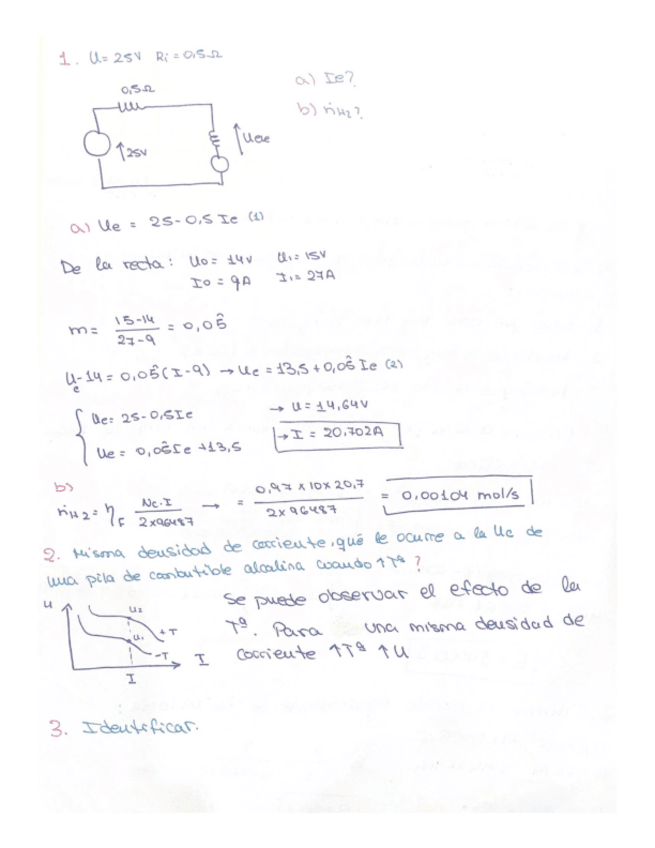 1. U= 25V Ri = 0,5Ω
a) Ie?
0,5Ω
b) ṅH2?
↑25V
↑Uele
a) Ue = 25-0,5 Ie (1)
De la recta: U0= 14V U1= 15V
I0 = 9A I1= 27A
m= 15-14 / 27-9 = 0,05̂
Ue-14= 0,05̂(I-9) → Ue = 13,5+0,05̂ Ie (2)
Ue= 25-0,5Ie → U= 14,64V
Ue = 0,05̂Ie +13,5 → I = 20,702A
b)
ṅH2= ηF Nc·I / 2x96487 → = 0,97 x 10 x 20,7 / 2x96487 = 0,00104 mol/s
2. Misma densidad de corriente, qué le ocurre a la Uc de
una pila de combutible alcalina cuando ↑Tª ?
U U2 U1 +T -T I I
Se puede observar el efecto de la
Tª. Para una misma densidad de
corriente ↑Tª ↑U
3. Identificar.